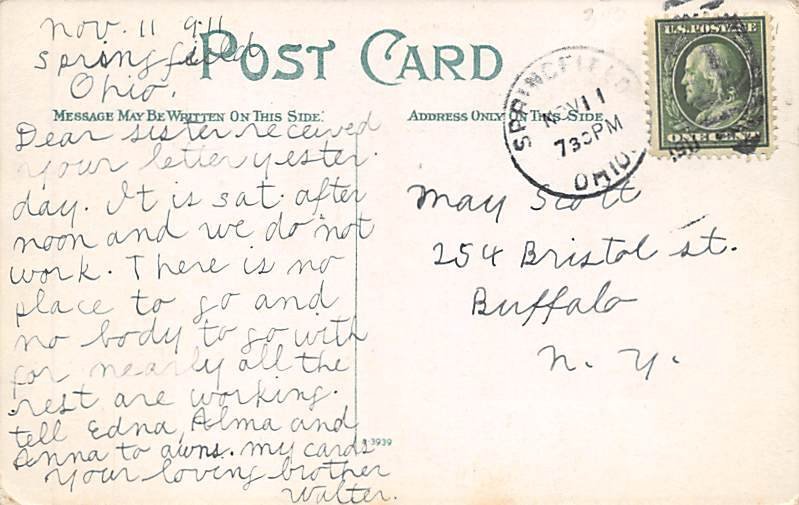 Nov. 11 911
Springfield
Ohio.
POST CARD
MESSAGE MAY BE WRITTEN ON THIS SIDE.
ADDRESS ONLY ON THIS SIDE
SPRINGFIELD
NOV 11
730PM
OHIO.
U.S. POSTAGE
ONE CENT
Dear sister received
your letter yester.
day. It is sat. after
noon and we do not
work. There is no
place to go and
no body to go with
for nearly all the
rest are working.
tell Edna, Alma and
Anna to awns. my cards
Your loving brother
Walter.
May Scott
254 Bristol st.
Buffalo
N. Y.
3939